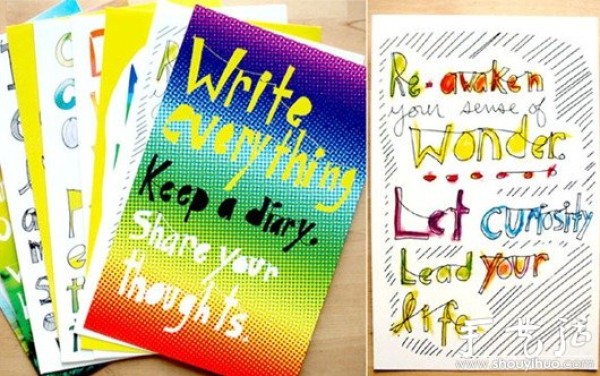 Write
everything
Keep a diary.
Share your
thoughts.
Re-awaken
your sense of
Wonder
Let curiosity
Lead your
life
手艺活
www.shouyihuo.com